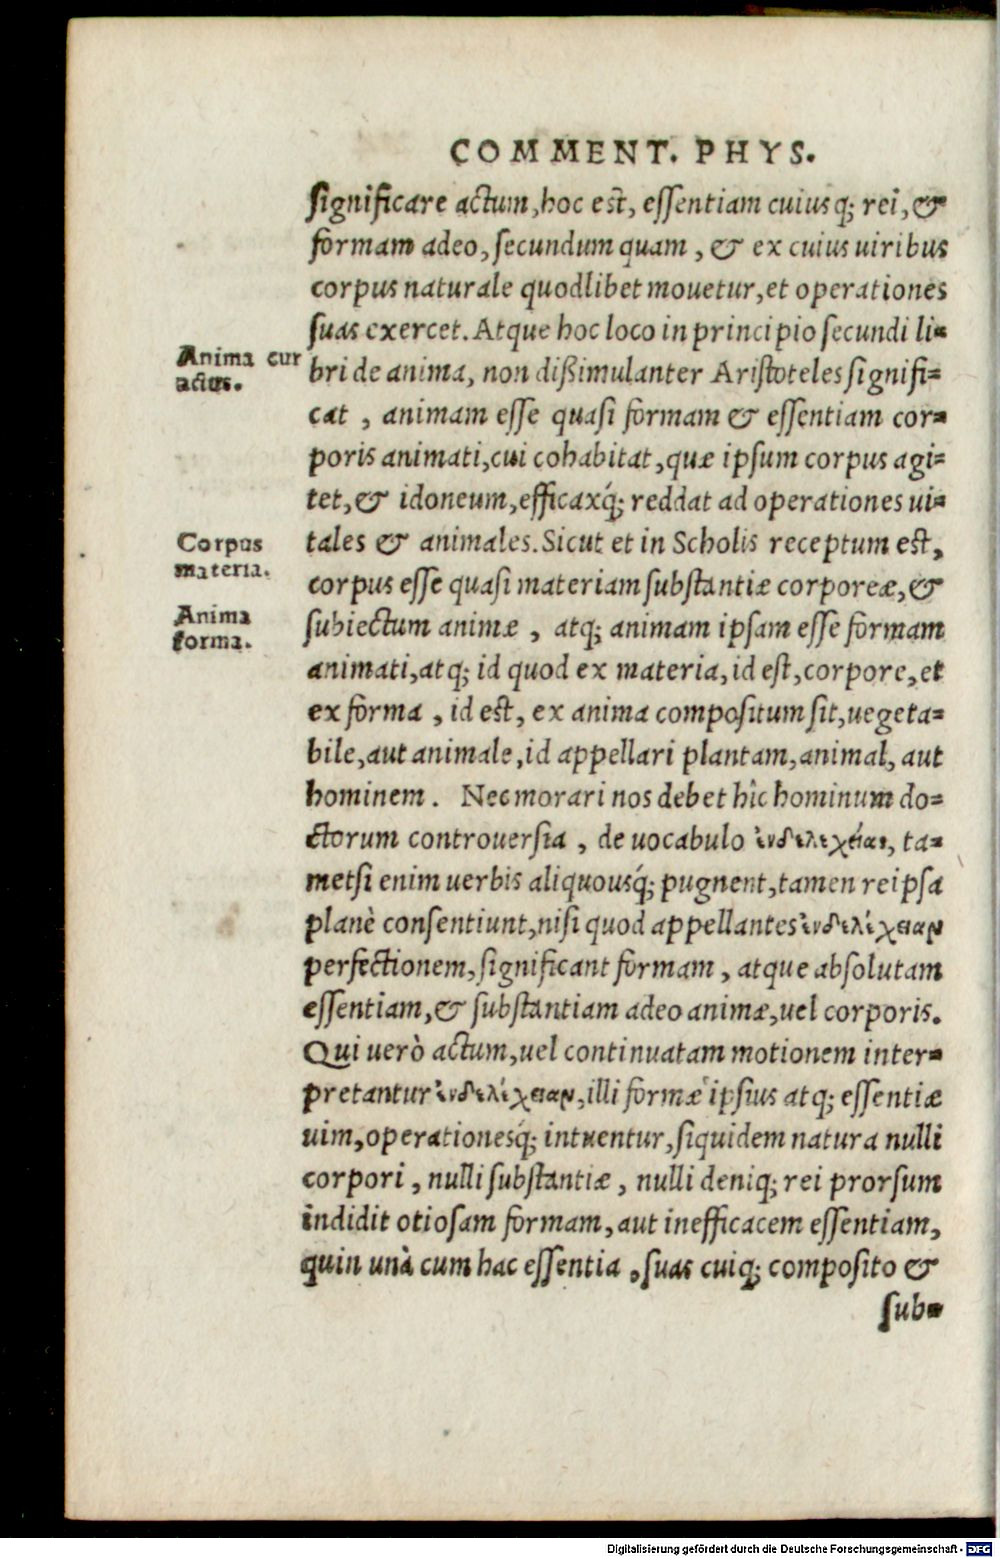 COMMENT. PHYS.
significare actum, hoc est, essentiam cuiusq; rei, &
formam adeo, secundum quam, & ex cuius uiribus
corpus naturale quodlibet mouetur, et operationes
suas exercet. Atque hoc loco in principio secundi li=
Anima cur
actus.
bri de anima, non dißimulanter Aristoteles signifi=
cat, animam esse quasi formam & essentiam cor=
poris animati, cui cohabitat, quæ ipsum corpus agi=
tet, & idoneum, efficaxq́; reddat ad operationes ui=
Corpus
materia.
tales & animales. Sicut et in Scholis receptum est,
corpus esse quasi materiam substantiæ corporeæ, &
Anima
forma.
subiectum animæ, atq; animam ipsam esse formam
animati, atq; id quod ex materia, id est, corpore, et
ex forma, id est, ex anima compositum sit, uegeta=
bile, aut animale, id appellari plantam, animal, aut
hominem. Nec morari nos debet hîc hominum do=
ctorum controuersia, de uocabulo ἐνδελεχείας, ta=
metsi enim uerbis aliquousq́; pugnent, tamen reipsa
planè consentiunt, nisi quod appellantes ἐνδελέχειαν
perfectionem, significant formam, atque absolutam
essentiam, & substantiam adeo animæ, uel corporis.
Qui uerò actum, uel continuatam motionem inter=
pretantur ἐνδελέχειαν, illi formæ ipsius atq; essentiæ
uim, operationesq́; intuentur, siquidem natura nulli
corpori, nulli substantiæ, nulli deniq; rei prorsum
indidit otiosam formam, aut inefficacem essentiam,
quin unà cum hac essentia, suas cuiq; composito &
sub=
Digitalisierung gefördert durch die Deutsche Forschungsgemeinschaft - DFG